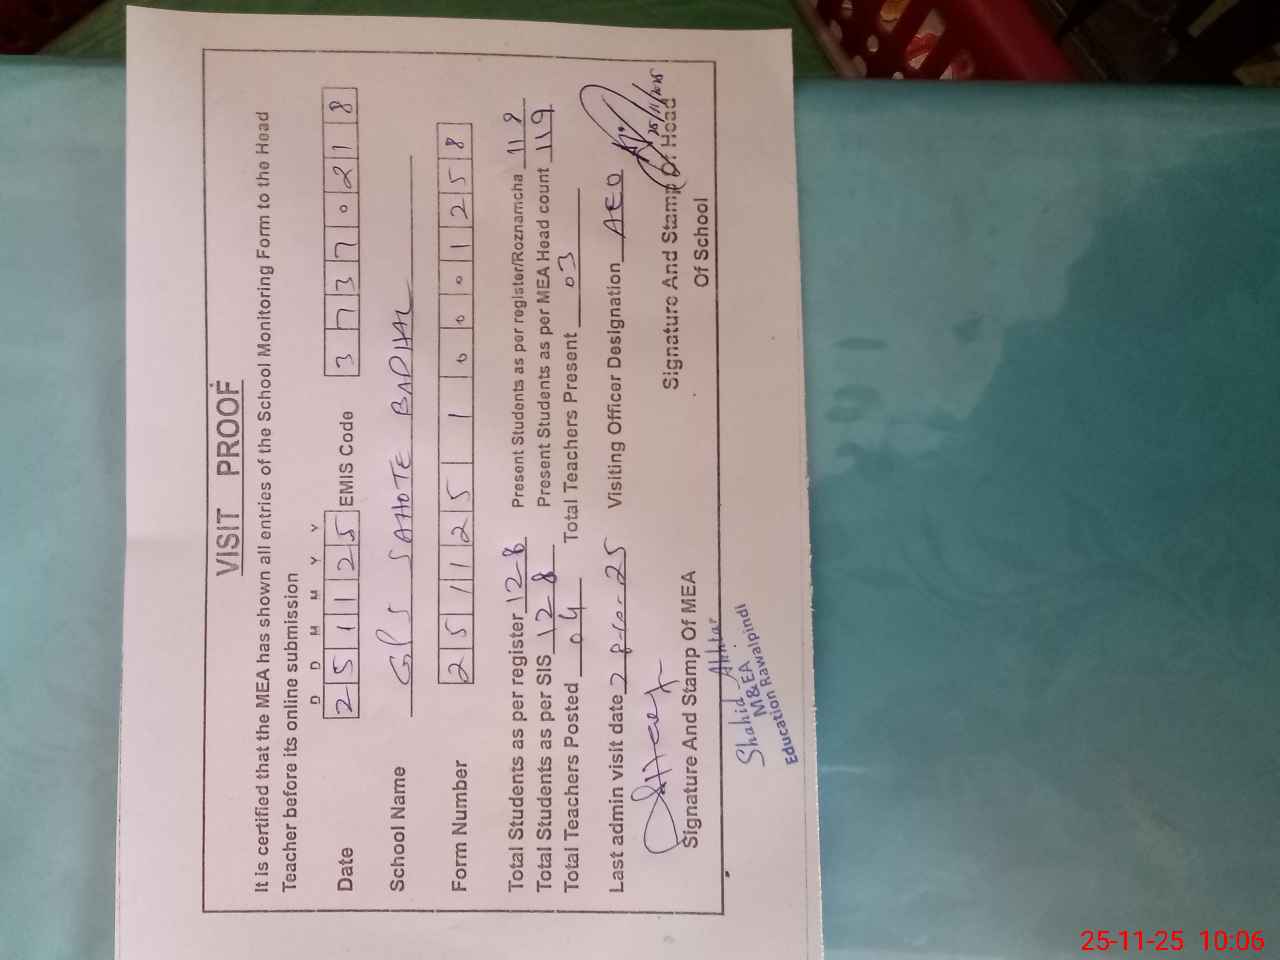 VISIT PROOF
It is certified that the MEA has shown all entries of the School Monitoring Form to the Head
Teacher before its online submission
D D M M Y Y
Date 2 5 1 1 2 5 EMIS Code 3 7 3 7 0 2 1 8
School Name GPS SAHOTE BADHAL
Form Number 2 5 1 1 2 5 1 0 0 0 1 2 5 8
Total Students as per register 128 Present Students as per register/Roznamcha 118
Total Students as per SIS 128 Present Students as per MEA Head count 119
Total Teachers Posted 04 Total Teachers Present 03
Last admin visit date 28-10-25 Visiting Officer Designation AEO
25/11/2025
Signature And Stamp Of MEA Signature And Stamp Of Head
Of School
Shahid Akhtar
M&EA
Education Rawalpindi
25-11-25 10:06